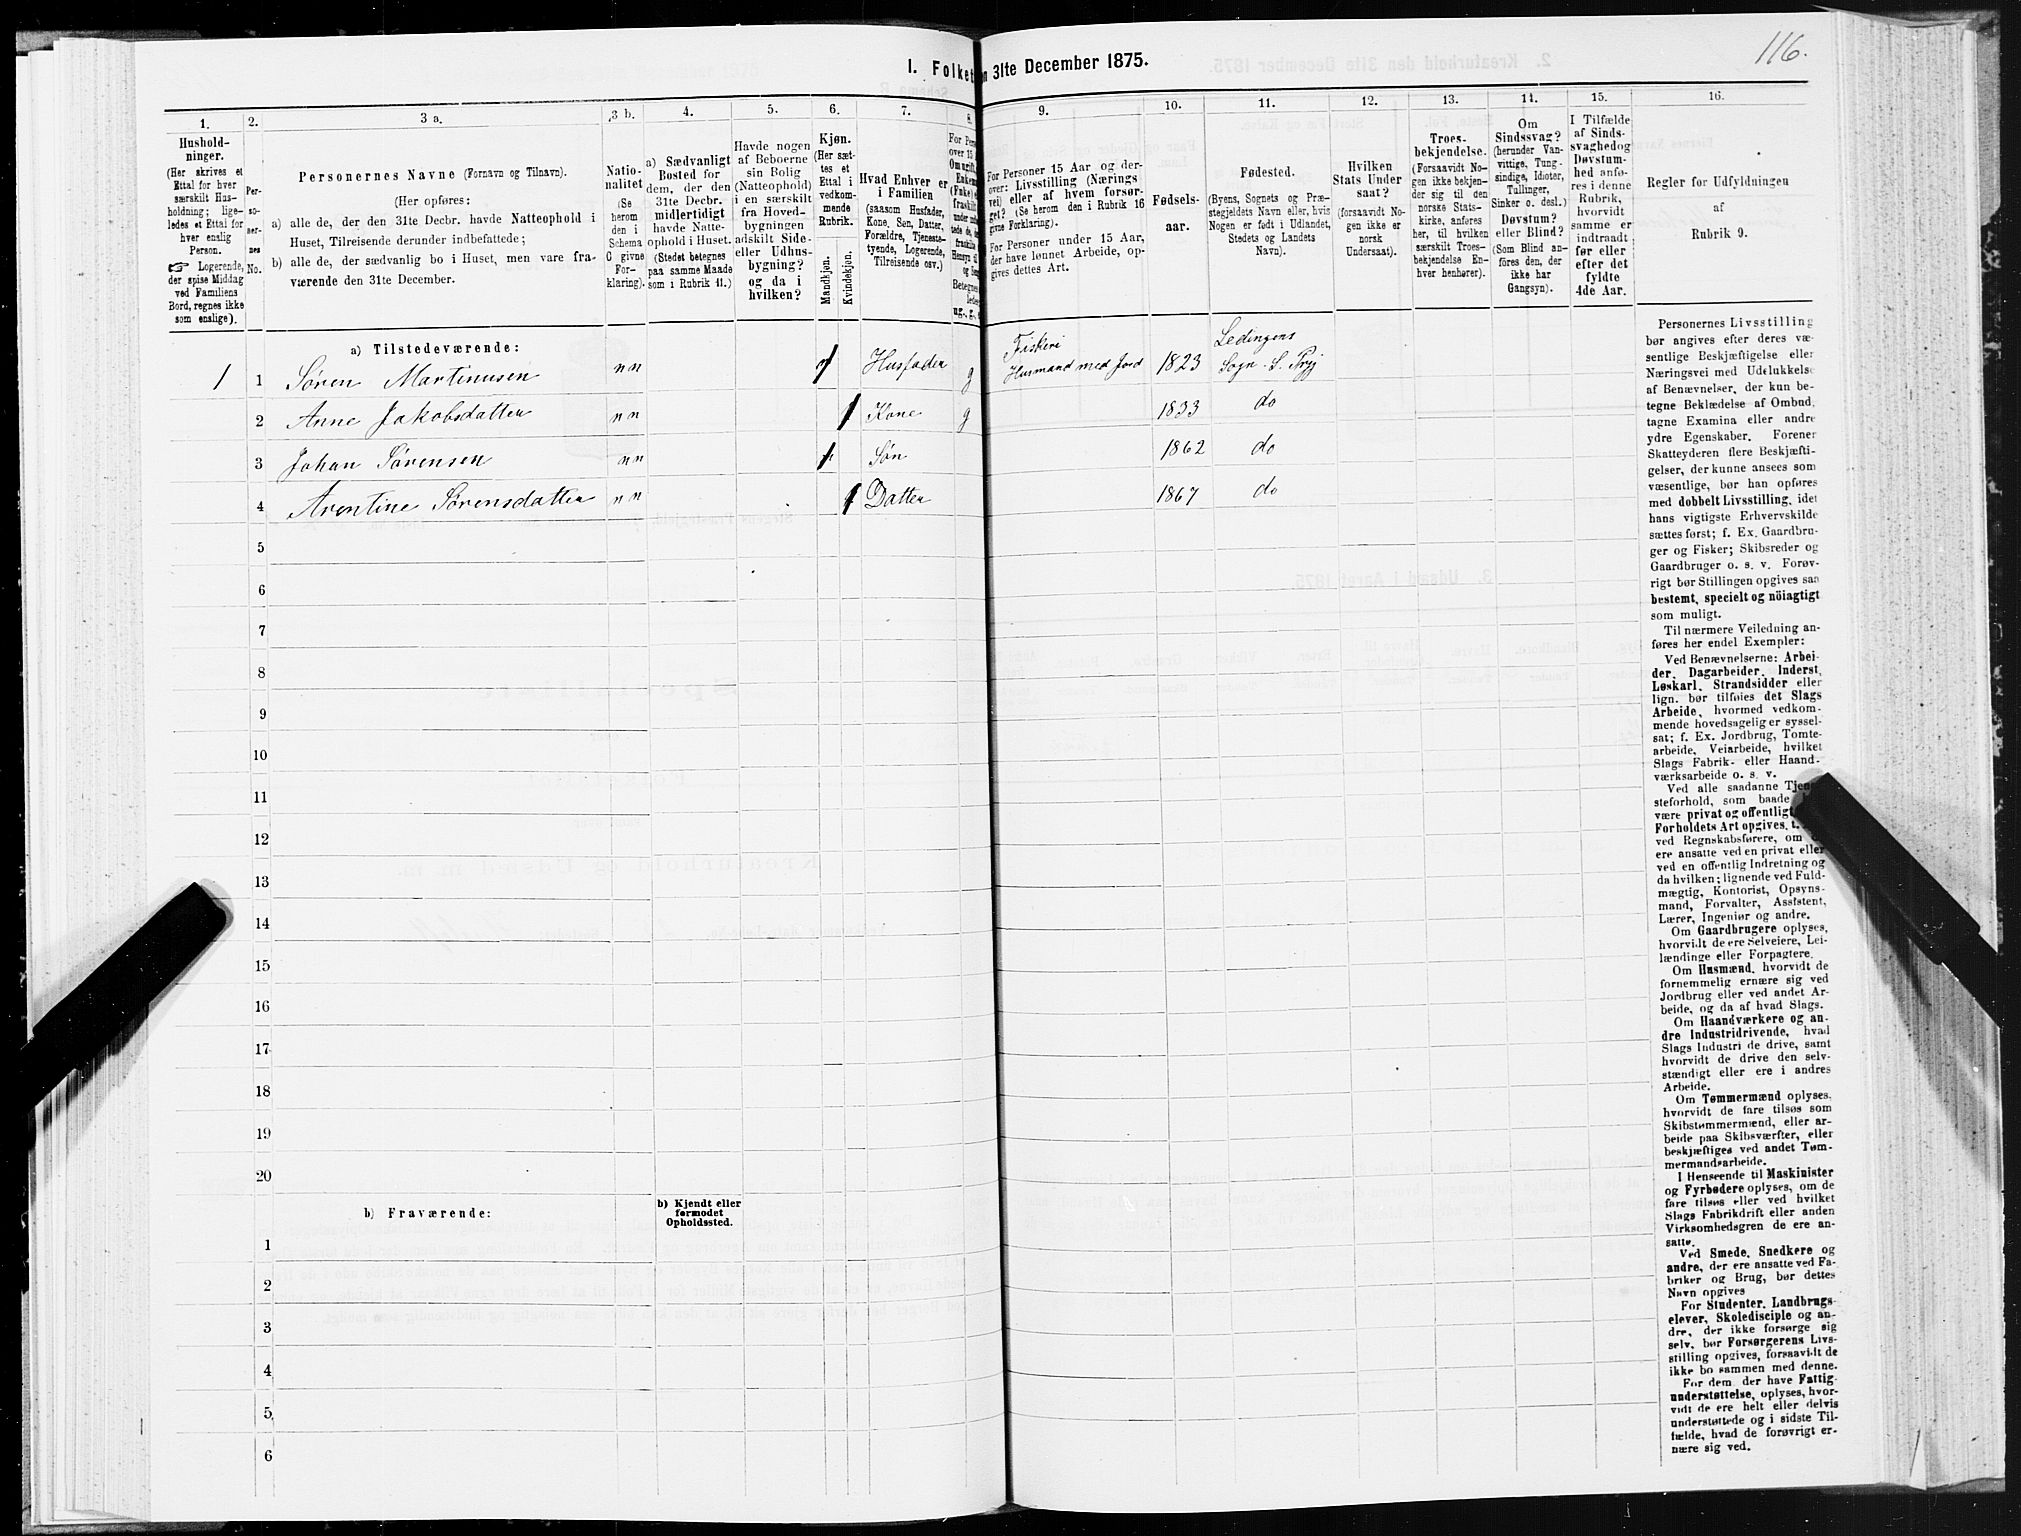 116.
I. Folket
n 31te December 1875.
1.
2.
3 a.
3 b.
4.
5.
6.
7.
8.
9.
10.
11.
12.
13.
14.
15.
16.
Hushold-
ninger.
(Her skrives et
Ettal for hver
særskilt Hus-
holdning; lige-
ledes et Ettal for
hver enslig
Person.
☞ Logerende,
der spise Middag
ved Familiens
Bord, regnes ikke
som enslige).
Per-
so-
ner-
nes
No.
Personernes Navne (Fornavn og Tilnavn).
(Her opføres:
a) alle de, der den 31te Decbr. havde Natteophold i
Huset, Tilreisende derunder indbefattede;
b) alle de, der sædvanlig bo i Huset, men vare fra-
værende den 31te December.
Natio-
nalitet
(Se
herom
den i
Schema
C givne
For-
klaring).
a) Sædvanligt
Bosted for
dem, der den
31te Decbr.
midlertidigt
havde Natte-
ophold i Huset.
(Stedet betegnes
paa samme Maade
som i Rubrik 11.)
Havde nogen
af Beboerne
sin Bolig
(Natteophold)
i en særskilt
fra Hoved-
bygningen
adskilt Side-
eller Udhus-
bygning?
og da i
hvilken?
Kjøn.
(Her sæt-
tes et
Ettal i
vedkom-
mende
Rubrik.
Mandkjøn.
Kvindekjøn.
Hvad Enhver er
i Familien
(saasom Husfader,
Kone, Søn, Datter,
Forældre, Tjeneste-
tyende, Logerende,
Tilreisende osv.)
For Personer 15 Aar og der-
over: Livsstilling (Nærings-
vei) eller af hvem forsør-
get? (Se herom den i Rubrik 16
givne Forklaring).
For Personer under 15 Aar,
der have lønnet Arbeide, op-
gives dettes Art.
Fødsels-
aar.
Fødested.
(Byens, Sognets og Præ-
stegjeldets Navn eller, hvis
Nogen er født i Udlandet,
Stedets og Landets
Navn).
Hvilken
Stats Under
saat?
(forsaavidt No-
gen ikke er
norsk
Undersaat).
Troes-
bekjendelse.
(Forsaavidt No-
gen ikke bekjen-
der sig til den
norske Stats-
kirke, anføres
her, til hvilken
særskilt Troes-
bekjendelse En-
hver henhører).
Om
Sindssvag?
(herunder Van-
vittige, Tung-
sindige, Idioter,
Tullinger,
Sinker o. desl.)
Døvstum?
eller Blind?
(Som Blind an-
føres den, der
ikke har
Gangsyn).
I Tilfælde
af Sinds-
svaghed og
Døvstum-
hed anfø-
res i denne
Rubrik,
hvorvidt
samme er
indtraadt
før eller
efter det
fyldte
4de Aar.
Regler for Udfyldningen
af
Rubrik 9.
a) Tilstedeværende:
1 1 Søren Martinusen nn 1 Husfader g Fiskeri Husmand med Jord 1823 Ledingens Sogn. S. Prgj
2 Anne Jakobsdatter nn 1 Kone g 1833 do
3 Johan Sørensen nn 1 Søn 1862 do
4 Arentine Sørensdatter nn 1 Datter 1867 do
5
6
7
8
9
10
11
12
13
14
15
16
17
18
19
20
b) Fraværende:
b) Kjendt eller
formodet
Opholdssted.
1
2
3
4
5
6
Personernes Livsstilling
bør angives efter deres væ-
sentlige Beskjæftigelse eller
Næringsvei med Udelukkelse
af Benævnelser, der kun be-
tegne Beklædelse af Ombud,
tagne Examina eller andre
ydre Egenskaber. Forener
Skatteyderen flere Beskjæfti-
gelser, der kunne ansees som
væsentlige, bør han opføres
med dobbelt Livsstilling, idet
hans vigtigste Erhvervskilde
sættes først; f. Ex. Gaardbru-
ger og Fisker; Skibsreder og
Gaardbruger o. s. v. Forøv-
rigt bør Stillingen opgives saa
bestemt, specielt og nöiagtigt
som muligt.
Til nærmere Veiledning an-
føres her endel Exempler:
Ved Benævnelserne: Arbei-
der, Dagarbeider, Inderst,
Løskarl, Strandsidder eller
lign. bør tilføies det Slags
Arbeide, hvormed vedkom-
mende hovedsagelig er syssel-
sat; f. Ex. Jordbrug, Tomte-
arbeide, Veiarbeide, hvilket
Slags Fabrik- eller Haand-
værksarbeide o. s. v.
Ved alle saadanne Tjene-
steforhold, som baade
være privat og offentligt,
Forholdets Art opgives, t.
ved Regnskabsførere, om
ere ansatte ved en privat eller
ved en offentlig Indretning og
da hvilken; lignende ved Fuld-
mægtig, Kontorist, Opsyns-
mand, Forvalter, Assistent,
Lærer, Ingeniør og andre.
Om Gaardbrugere oplyses,
hvorvidt de ere Selveiere, Lei-
lændinge eller Forpagtere.
Om Husmænd, hvorvidt de
fornemmelig ernære sig ved
Jordbrug eller ved andet Ar-
beide, og da af hvad Slags.
Om Haandværkere og an-
dre Industridrivende, hvad
Slags Industri de drive, samt
hvorvidt de drive den selv-
stændigt eller ere i andres
Arbeide.
Om Tømmermænd oplyses,
hvorvidt de fare tilsøs som
Skibstømmermænd, eller ar-
beide paa Skibsværfter, eller
beskjæftiges ved andet Tøm-
mermandsarbeide.
I Henseende til Maskinister
og Fyrbødere oplyses, om de
fare tilsøs eller ved hvilket
Slags Fabrikdrift eller anden
Virksomhedsgren de ere an-
satte.
Ved Smede, Snedkere og
andre, der ere ansatte ved Fa-
briker og Brug, bør dettes
Navn opgives
For Studenter, Landbrugs-
elever, Skoledisciple og an-
dre, der ikke forsørge sig
selv, bør Forsørgerens Livs-
stilling opgives, forsaavidt de
ikke bo sammen med denne.
For dem, der have Fattig-
understøttelse, oplyses, hvor-
vidt de ere helt eller delvis
understøttede og i sidste Til-
fælde, hvad de forøvrigt er-
nære sig ved.